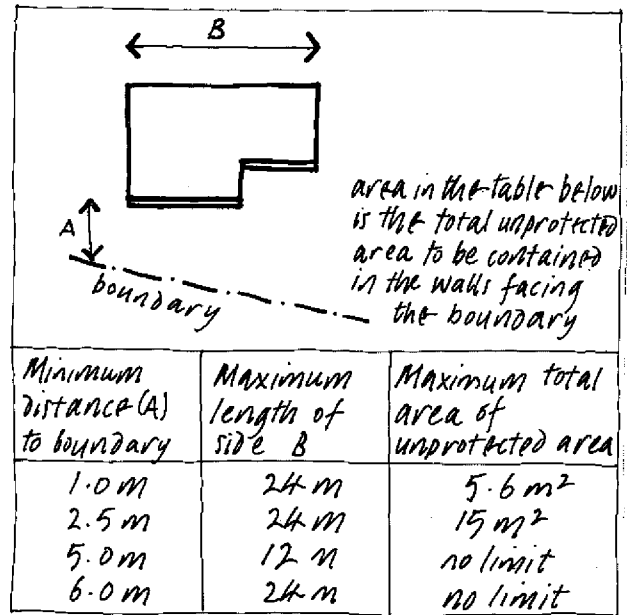 B
area in the table below
is the total unprotected
A
area to be contained
in the walls facing
boundary
the boundary
Minimum distance (A) to boundary
Maximum length of side B
Maximum total area of unprotected area
1.0 m 24 m 5.6 m²
2.5 m 24 m 15 m²
5.0 m 12 m no limit
6.0 m 24 m no limit